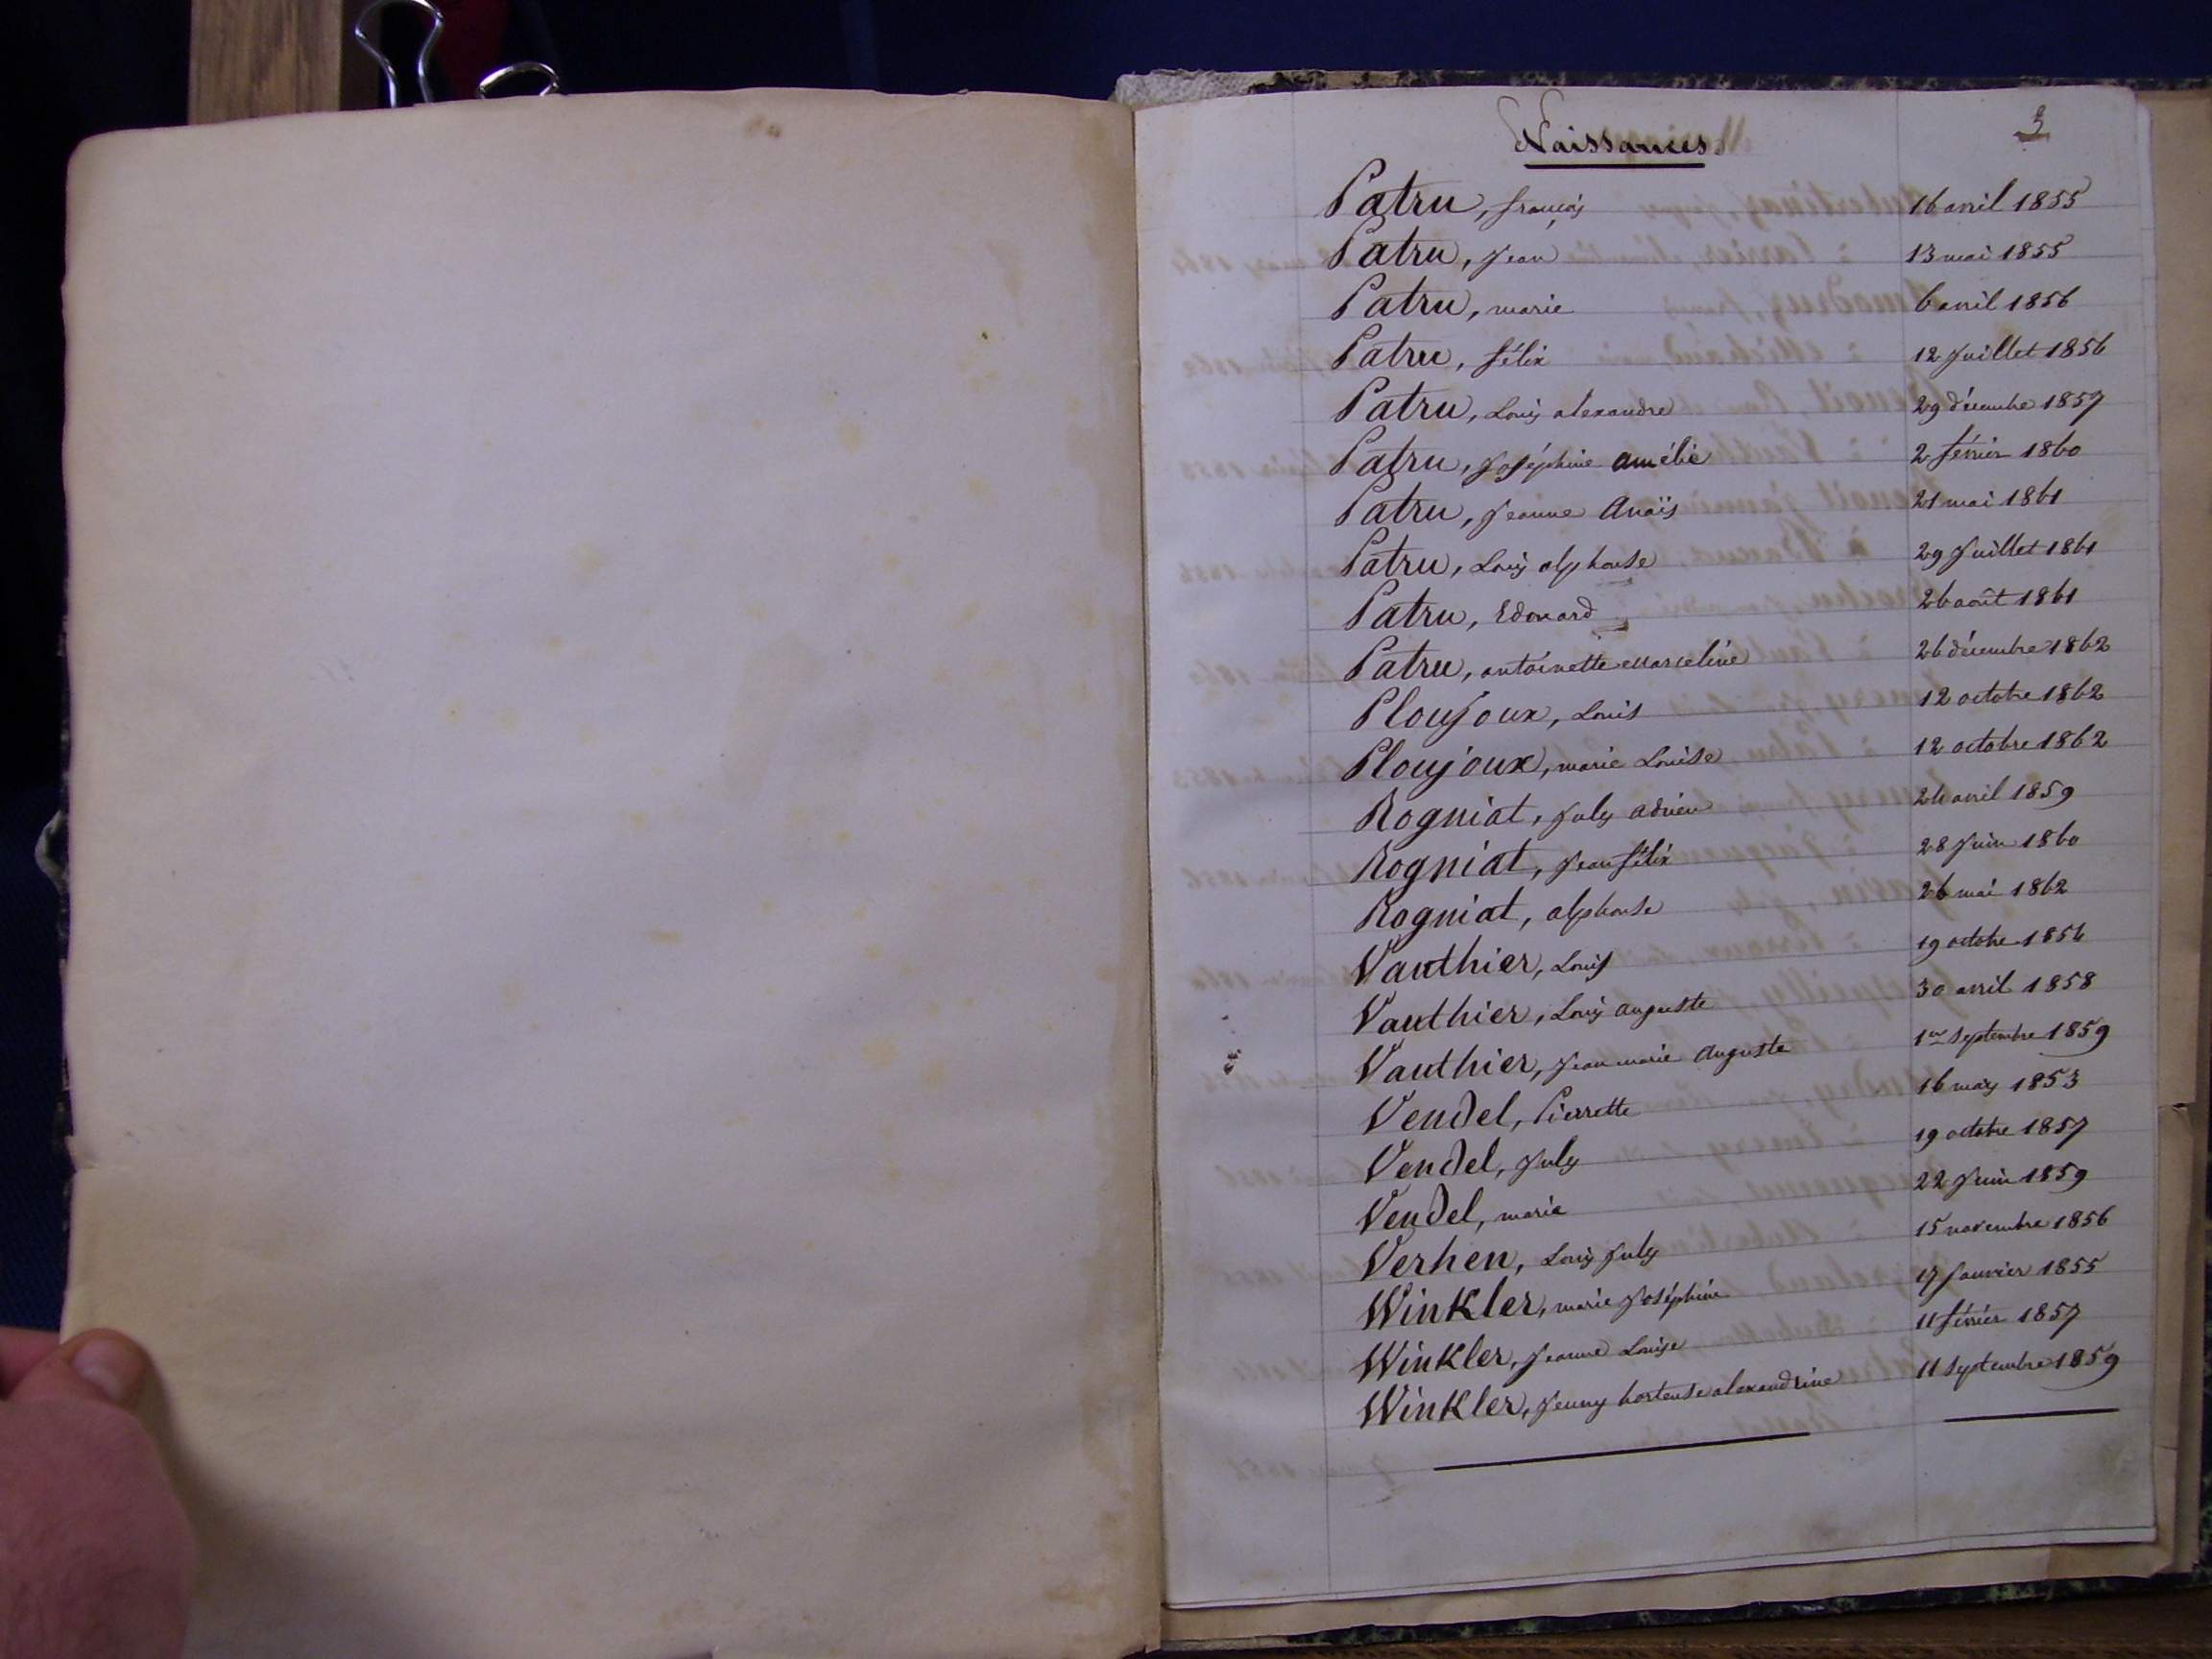 Naissances
3
Patru, françois 16 avril 1855
Patru, Jean 13 mai 1855
Patru, marie 6 avril 1856
Patru, félix 12 Juillet 1856
Patru, Louis alexandre 29 décembre 1857
Patru, Joséphine amélie 2 février 1860
Patru, Jeanne Anaïs 21 mai 1861
Patru, Louis alphonse 29 Juillet 1861
Patru, Edouard 26 août 1861
Patru, antoinette marceline 26 décembre 1862
Ploujoux, Louis 12 octobre 1862
Ploujoux, marie Louise 12 octobre 1862
Rogniat, Jules adrien avril 1859
Rogniat, Jean félix 28 Juin 1860
Rogniat, alphonse 26 mai 1862
Vauthier, Louis 19 octobre
Vauthier, Louis auguste 30 avril 1858
Vauthier, Jean marie Auguste 1er septembre 1859
Vendel, Pierrette 16 mars 1853
Vendel, Jules 19 octobre 1857
Vendel, marie 22 Juin 1859
Verhen, Louis Jules 15 novembre 1856
Winkler, marie Joséphine 17 Janvier 1855
Winkler, Jeanne Louise 11 février 1857
Winkler, Jenny hortense alexandrine 11 septembre 1859